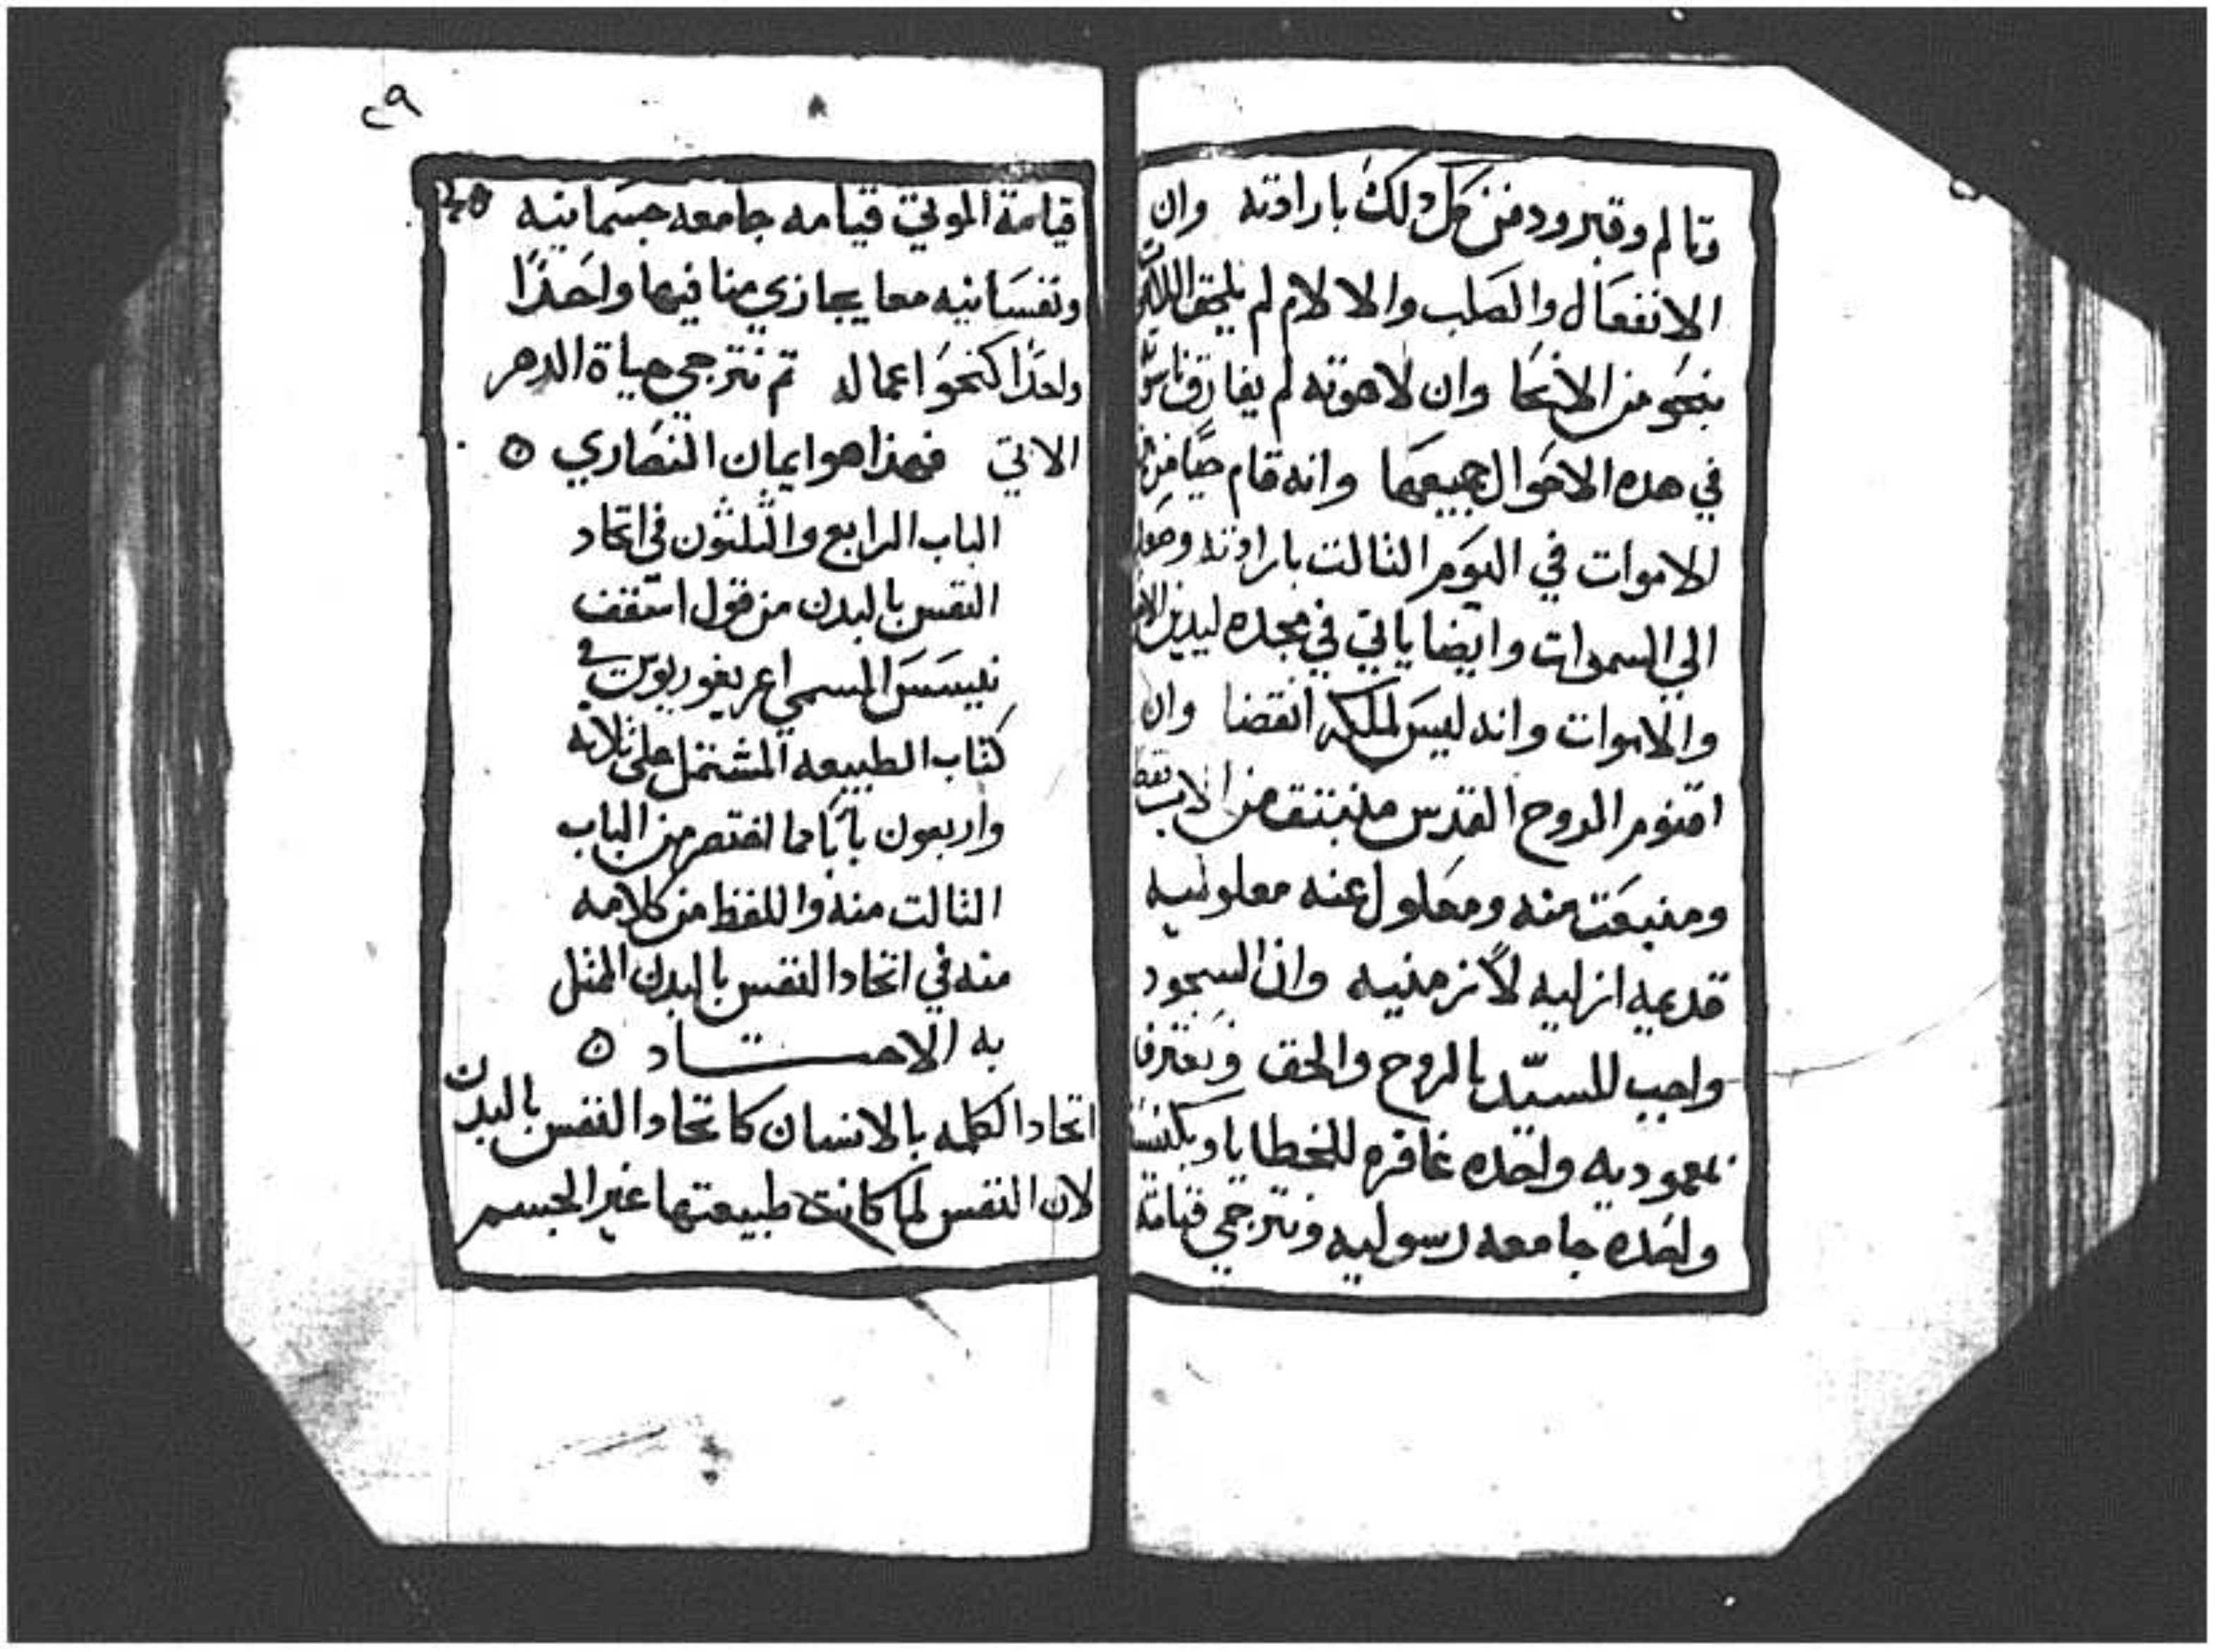 وتالم وقبر ودفن كل دلك بارادته وان
الانفعال والصلب والالام لم يلحق اللاهوت
بنحو من الانحا وان لاهوته لم يفارق ناسوته
في هده الاحوال جميعها وانه قام حيا من
الاموات في اليوم التالت بارادته وصعد
الي السموات وايضا ياتي في مجده ليدين الاحيا
والاموات وانه ليس لملكه انقضا وان
اقنوم الروح القدس منبتق من الاب فقط
ومنبعت منه ومعلول عنه معلوليه
قدميه ازليه لا زمنيه وان السجود
واجب للسيد بالروح والحق ونعترف
بمعموديه واحده غافره للخطايا وبكنيسه
واحده جامعه رسوليه ونترجي قيامة
٢٩
قيامة الموتي قيامه جامعه جسمانيه
ونفسانيه معا يجازي منا فيها واحدًا
واحدًا كنحو اعماله تم نترجي حياة الدهر
الاتي فهذا هو ايمان النصاري ٥
الباب الرابع والثلثون في اتحاد
النفس بالبدن من قول اسقف
نيسس المسمي اغريغوريوس في
كتاب الطبيعه المشتمل على ثلاثه
واربعون بابا مما اختصر من الباب
التالت منه واللفظ من كلامه
منه في اتحاد النفس بالبدن الممثل
به الاتحـــاد ٥
اتحاد الكلمه بالانسان كاتحاد النفس بالبدن
لان النفس لما كانت طبيعتها غير الجسم